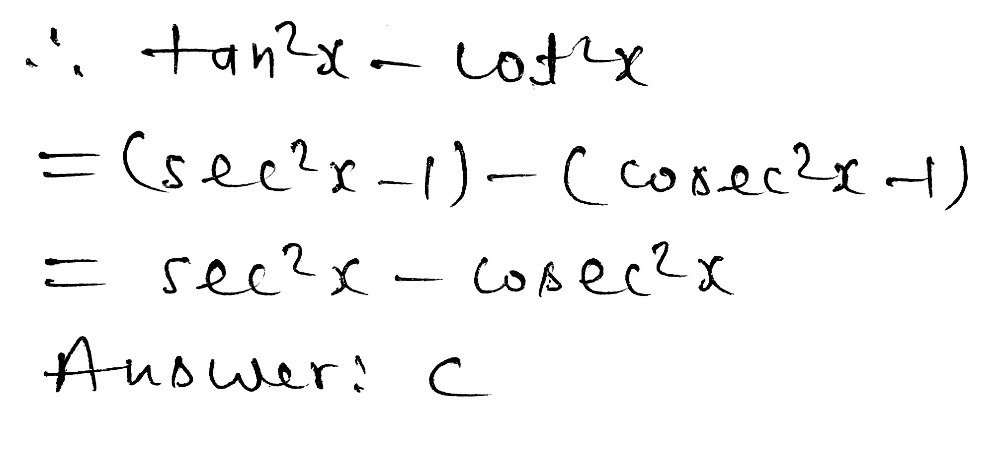 ∴ tan²x – cot²x
= (sec²x – 1) – (cosec²x – 1)
= sec²x – cosec²x
Answer: C